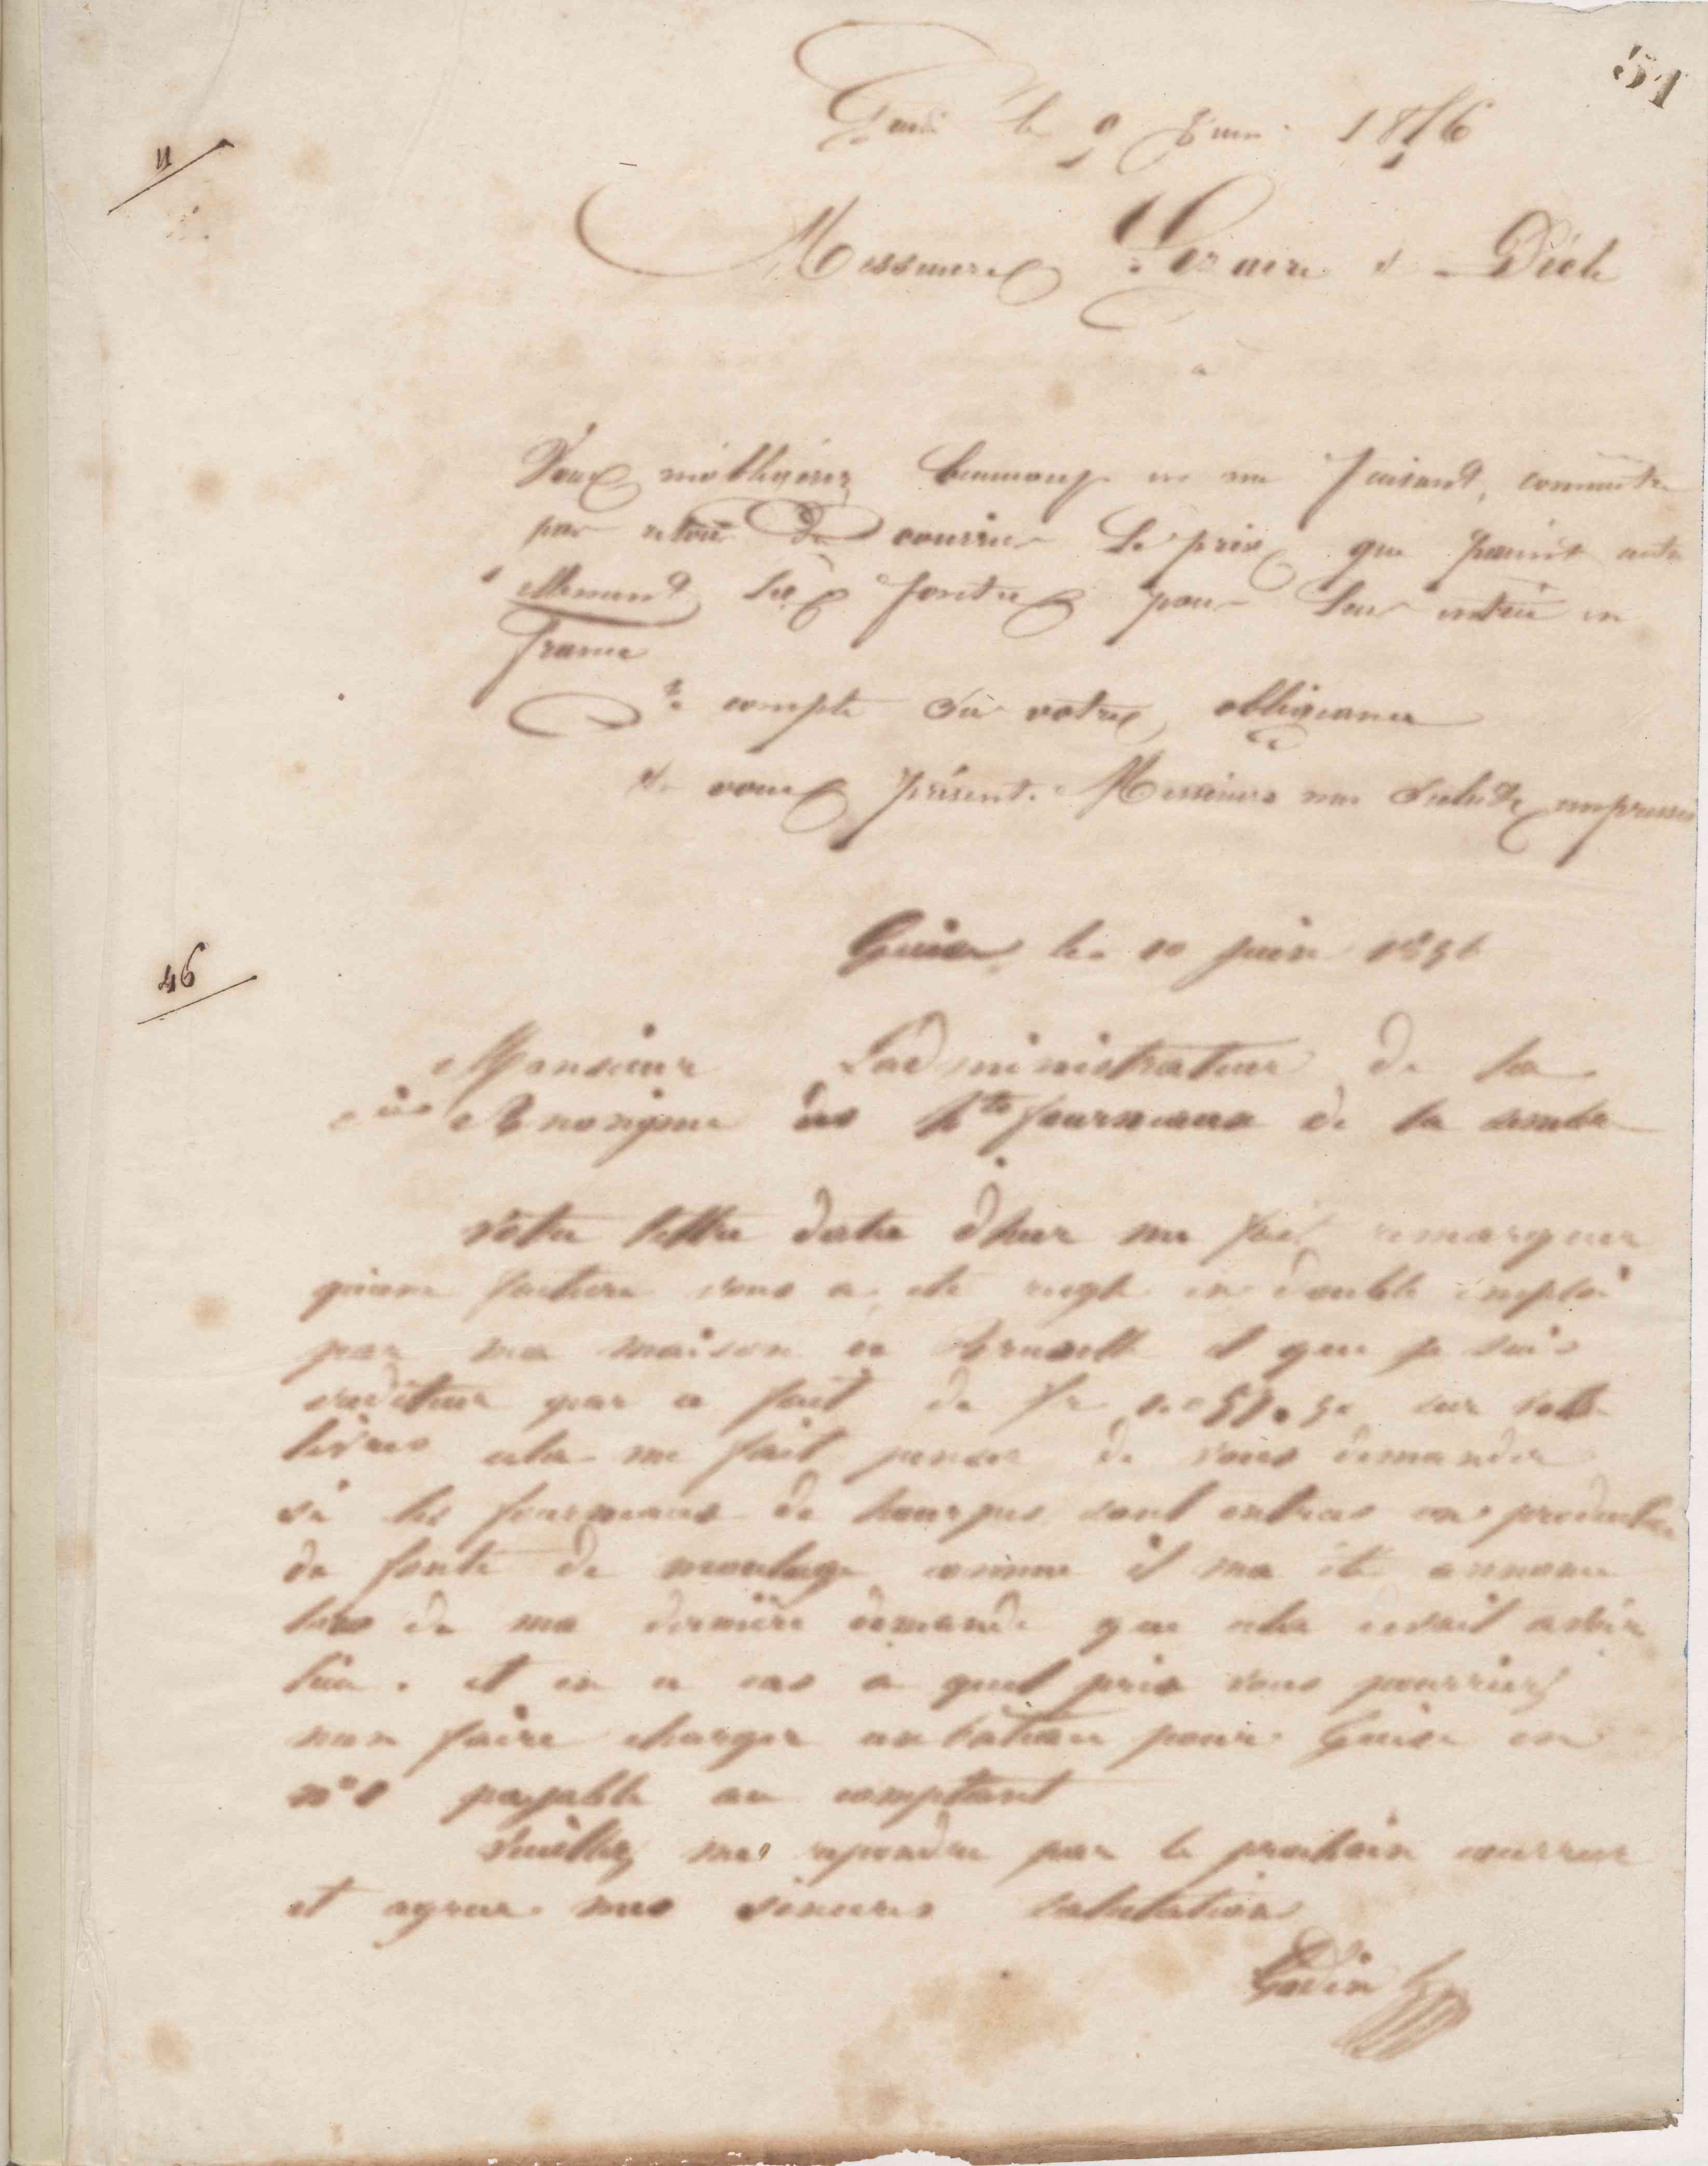 51
11
le 9 Juin 1856
Messieurs & Dieh
Vous m'obligerez beaucoup en me faisant connaître
par retour de courrier Le prix que paient actu
ellement les fontes pour leur entrée en
france
Je compte sur votre obligeance
& vous présente Messieurs mes Saluts empressés
46
Guise le 10 juin 1856
Monsieur L'administrateur de la
Anonyme des hts fourneaux de la
Votre lettre date d'hier me fait remarquer
qu'une facture vous a été reglé en double emploi
par ma maison de Bruxelle et que je suis
créditeur par ce fait de fr sur votre
livres cela me fait penser de vous demander
si les fourneaux de hourpes sont entrés en production
de fonte de moulage comme il ma été annoncé
lors de ma dernière demande que cela devait avoir
lieu. et en ce cas a quel prix vous pourriez
men faire charger un bateau pour Guise en
n° 1 payable au comptant
Veuillez me repondre par le prochain courrier
et agreer mes sincères salutations
Godin